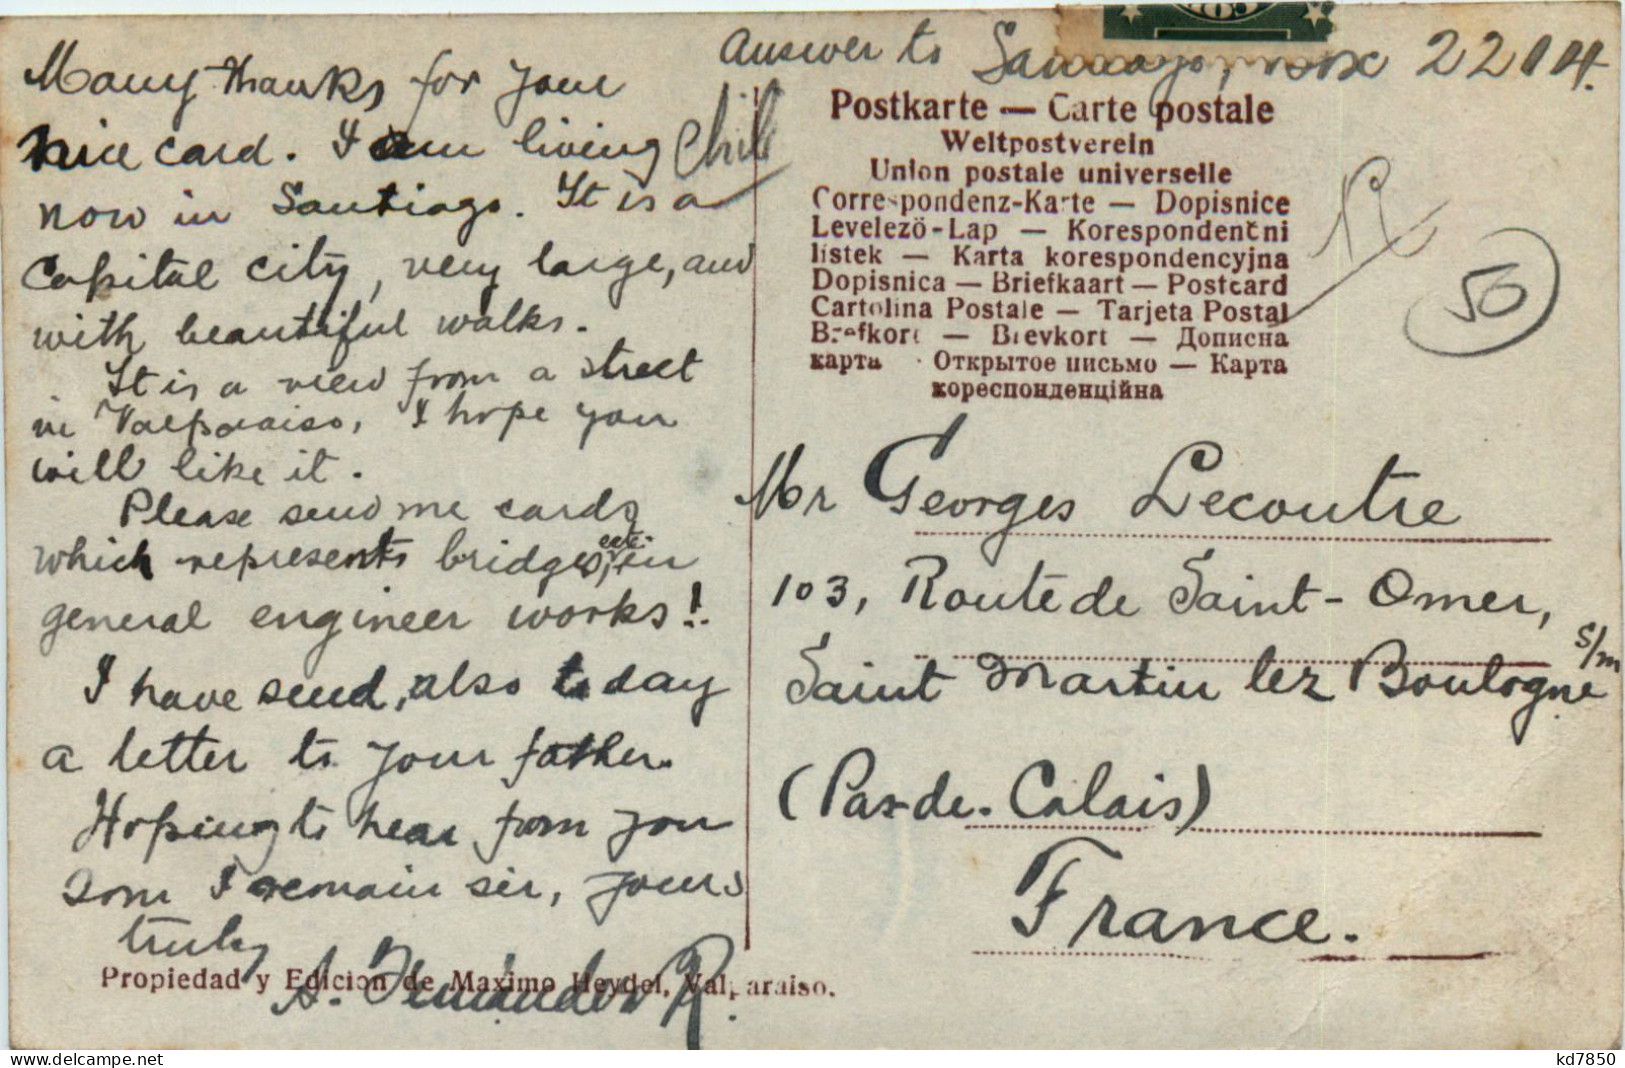 Answer to Santiago, box 2214.
Many thanks for your
nice card. I am living
Chile
now in Santiago. It is a
Capital city, very large, and
with beautiful walks.
It is a view from a street
in Valparaiso, I hope you
will like it.
Please send me cards
which represents bridges, ect. in
general engineer works!
I have send, also to day
a letter to your father.
Hoping to hear from you
som I remain sir, yours
truly
A. Fernández R.
Propiedad y Edicion de Maximo Heydel, Valparaiso.
Postkarte — Carte postale
Weltpostverein
Union postale universelle
Correspondenz-Karte — Dopisnice
Levelezö-Lap — Korespondenční
listek — Karta korespondencyjna
Dopisnica — Briefkaart — Postcard
Cartolina Postale — Tarjeta Postal
Brefkort — Brevkort — Дописна
карта · Открытое письмо — Карта
кореспонденційна
50
Mr Georges Lecoutre
103, Route de Saint-Omer,
Saint Martin lez Boulogne s/m
(Pas-de-Calais)
France.
kd7850
www.delcampe.net